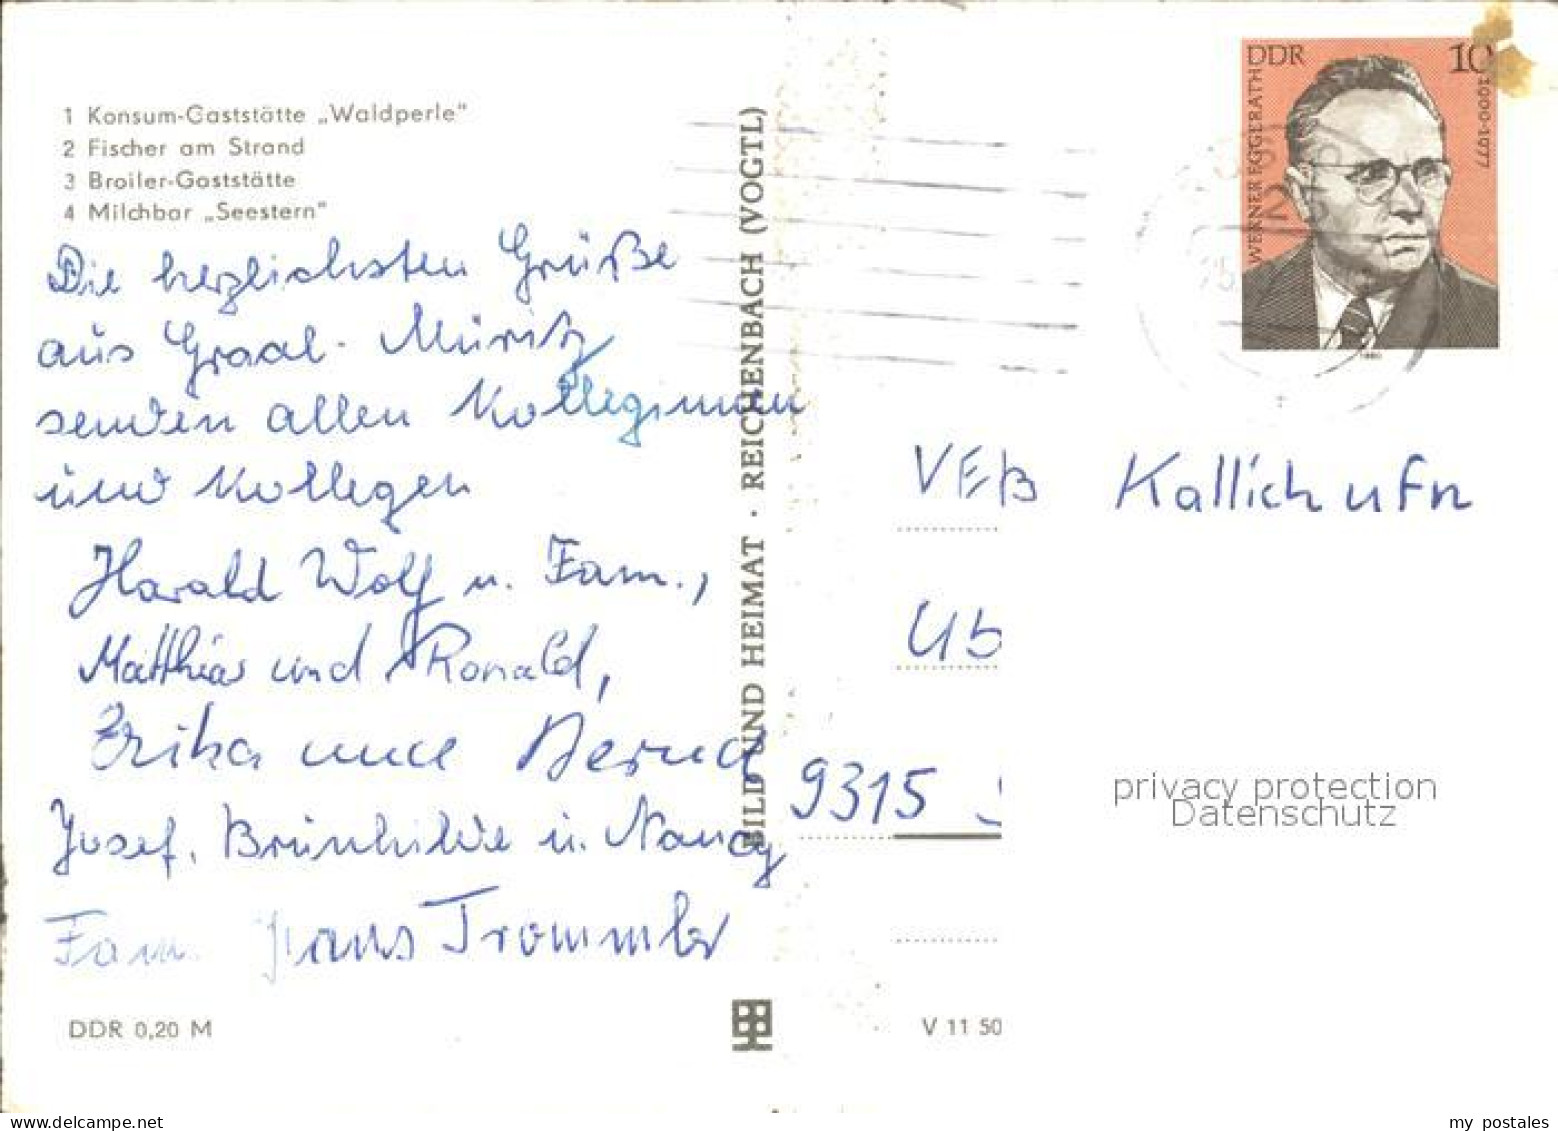 1 Konsum-Gaststätte „Waldperle"
2 Fischer am Strand
3 Broiler-Gaststätte
4 Milchbar „Seestern"
Die herzlichsten Grüße
aus Graal-Müritz
senden allen Kolleginnen
und Kollegen
Harald Wolf u. Fam.,
Matthias und Ronald,
Erika und Bernd
Josef, Brünhilde u. Nancy
Fam. Hans Trommler
DDR 0,20 M
BILD UND HEIMAT · REICHENBACH (VOGTL)
DDR 10
WERNER EGGERATH 1900-1977
1980
VEB
9315
privacy protection
Datenschutz
V 11 50
www.delcampe.net
my_postales